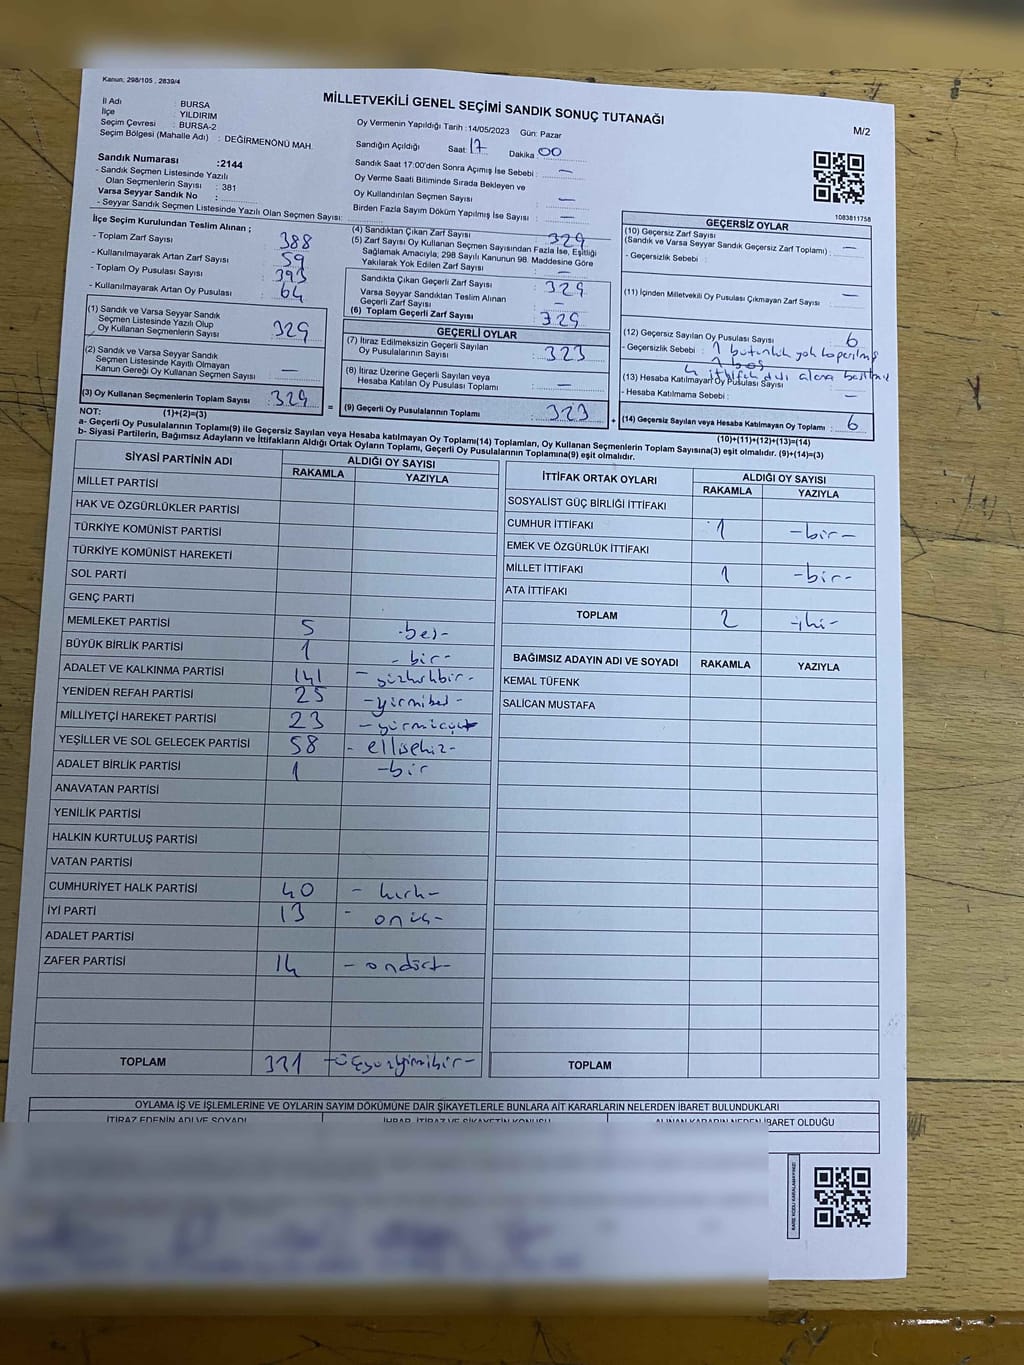 Kanun: 298/105 , 2839/4
MİLLETVEKİLİ GENEL SEÇİMİ SANDIK SONUÇ TUTANAĞI
M/2
İl Adı : BURSA
İlçe : YILDIRIM
Seçim Çevresi : BURSA-2
Seçim Bölgesi (Mahalle Adı) : DEĞİRMENÖNÜ MAH.
Sandık Numarası :2144
- Sandık Seçmen Listesinde Yazılı
Olan Seçmenlerin Sayısı : 381
Varsa Seyyar Sandık No :
- Seyyar Sandık Seçmen Listesinde Yazılı Olan Seçmen Sayısı:
Oy Vermenin Yapıldığı Tarih :14/05/2023 Gün: Pazar
Sandığın Açıldığı Saat: 17 Dakika: 00
Sandık Saat 17:00'den Sonra Açımış İse Sebebi : —
Oy Verme Saati Bitiminde Sırada Bekleyen ve
Oy Kullandırılan Seçmen Sayısı : —
Birden Fazla Sayım Döküm Yapılmış İse Sayısı : —
1083811758
İlçe Seçim Kurulundan Teslim Alınan ;
- Toplam Zarf Sayısı : 388
- Kullanılmayarak Artan Zarf Sayısı : 59
- Toplam Oy Pusulası Sayısı : 393
- Kullanılmayarak Artan Oy Pusulası : 64
(1) Sandık ve Varsa Seyyar Sandık
Seçmen Listesinde Yazılı Olup
Oy Kullanan Seçmenlerin Sayısı : 329
(2) Sandık ve Varsa Seyyar Sandık
Seçmen Listesinde Kayıtlı Olmayan
Kanun Gereği Oy Kullanan Seçmen Sayısı : —
(3) Oy Kullanan Seçmenlerin Toplam Sayısı : 329
(4) Sandıktan Çıkan Zarf Sayısı : 329
(5) Zarf Sayısı Oy Kullanan Seçmen Sayısından Fazla İse, Eşitliği
Sağlamak Amacıyla, 298 Sayılı Kanunun 98. Maddesine Göre
Yakılarak Yok Edilen Zarf Sayısı : —
Sandıkta Çıkan Geçerli Zarf Sayısı : 329
Varsa Seyyar Sandıktan Teslim Alınan
Geçerli Zarf Sayısı : —
(6) Toplam Geçerli Zarf Sayısı : 329
GEÇERLİ OYLAR
(7) İtiraz Edilmeksizin Geçerli Sayılan
Oy Pusulalarının Sayısı : 323
(8) İtiraz Üzerine Geçerli Sayılan veya
Hesaba Katılan Oy Pusulası Toplamı : —
= (9) Geçerli Oy Pusulalarının Toplamı : 323 +
GEÇERSİZ OYLAR
(10) Geçersiz Zarf Sayısı
(Sandık ve Varsa Seyyar Sandık Geçersiz Zarf Toplamı) : —
- Geçersizlik Sebebi :
(11) İçinden Milletvekili Oy Pusulası Çıkmayan Zarf Sayısı : —
(12) Geçersiz Sayılan Oy Pusulası Sayısı : 6
- Geçersizlik Sebebi : 1 bütünlük yok koparılmış
1 boş
4 ittifak dışı alana basılmış
(13) Hesaba Katılmayan Oy Pusulası Sayısı
- Hesaba Katılmama Sebebi : —
(14) Geçersiz Sayılan veya Hesaba Katılmayan Oy Toplamı : 6
(10)+(11)+(12)+(13)=(14)
NOT: (1)+(2)=(3)
a- Geçerli Oy Pusulalarının Toplamı(9) ile Geçersiz Sayılan veya Hesaba katılmayan Oy Toplamı(14) Toplamları, Oy Kullanan Seçmenlerin Toplam Sayısına(3) eşit olmalıdır. (9)+(14)=(3)
b- Siyasi Partilerin, Bağımsız Adayların ve İttifakların Aldığı Ortak Oyların Toplamı, Geçerli Oy Pusulalarının Toplamına(9) eşit olmalıdır.
SİYASİ PARTİNİN ADI ALDIĞI OY SAYISI
RAKAMLA YAZIYLA
MİLLET PARTİSİ
HAK VE ÖZGÜRLÜKLER PARTİSİ
TÜRKİYE KOMÜNİST PARTİSİ
TÜRKİYE KOMÜNİST HAREKETİ
SOL PARTİ
GENÇ PARTİ
MEMLEKET PARTİSİ 5 -beş-
BÜYÜK BİRLİK PARTİSİ 1 -bir-
ADALET VE KALKINMA PARTİSİ 141 -yüzkırkbir-
YENİDEN REFAH PARTİSİ 25 -yirmibeş-
MİLLİYETÇİ HAREKET PARTİSİ 23 -yirmiüç-
YEŞİLLER VE SOL GELECEK PARTİSİ 58 -ellisekiz-
ADALET BİRLİK PARTİSİ 1 -bir
ANAVATAN PARTİSİ
YENİLİK PARTİSİ
HALKIN KURTULUŞ PARTİSİ
VATAN PARTİSİ
CUMHURİYET HALK PARTİSİ 40 -kırk-
İYİ PARTİ 13 -onüç-
ADALET PARTİSİ
ZAFER PARTİSİ 14 -ondört-
TOPLAM 321 -üçyüzyirmibir-
İTTİFAK ORTAK OYLARI ALDIĞI OY SAYISI
RAKAMLA YAZIYLA
SOSYALİST GÜÇ BİRLİĞİ İTTİFAKI
CUMHUR İTTİFAKI 1 -bir-
EMEK VE ÖZGÜRLÜK İTTİFAKI
MİLLET İTTİFAKI 1 -bir-
ATA İTTİFAKI
TOPLAM 2 -iki-
BAĞIMSIZ ADAYIN ADI VE SOYADI RAKAMLA YAZIYLA
KEMAL TÜFENK
SALİCAN MUSTAFA
TOPLAM
OYLAMA İŞ VE İŞLEMLERİNE VE OYLARIN SAYIM DÖKÜMÜNE DAİR ŞİKAYETLERLE BUNLARA AİT KARARLARIN NELERDEN İBARET BULUNDUKLARI
İTİRAZ EDENİN ADI VE SOYADI İHBAR, İTİRAZ VE ŞİKAYETİN KONUSU ALINAN KARARIN NEDEN İBARET OLDUĞU
KARE KODU KARALAMAYINIZ!